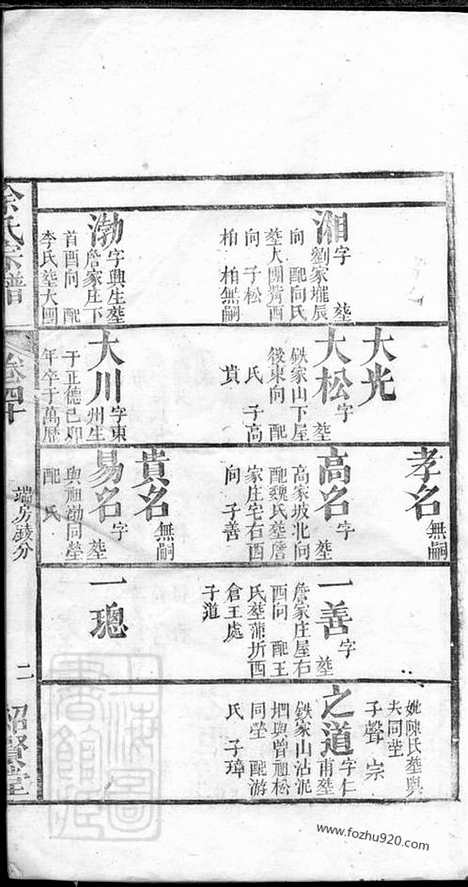 湘字　塟
劉家壠辰
向　配向氏
塟大團背酉
向　子松
柏　柏無嗣
渤字興生塟
詹家庄下
首酉向　配
李氏塟大團
大光
大松字　塟
鉄家山下屋
後東向　配
氏　子高
貴
大川字東
州生
于正德己卯
年卒于萬曆
孝名無嗣
高名字　塟
高家坡北向
配魏氏塟詹
家庄宅右酉
向　子善
貴名無嗣
易名字　塟
與祖渤同塋
配　氏
一善字　塟
詹家庄屋右
酉向　配王
氏塟蒲圻西
倉王處
子道
一璁
妣陳氏塟與
夫同塋
子聲　宗
之道字仁
甫塟
鉄家山沾泥
垇與曾祖松
同塋　配游
氏　子璋
余氏宗譜
卷四十
端房茂分
二
紹賢堂
上海圖書館藏
www.fozhu920.com